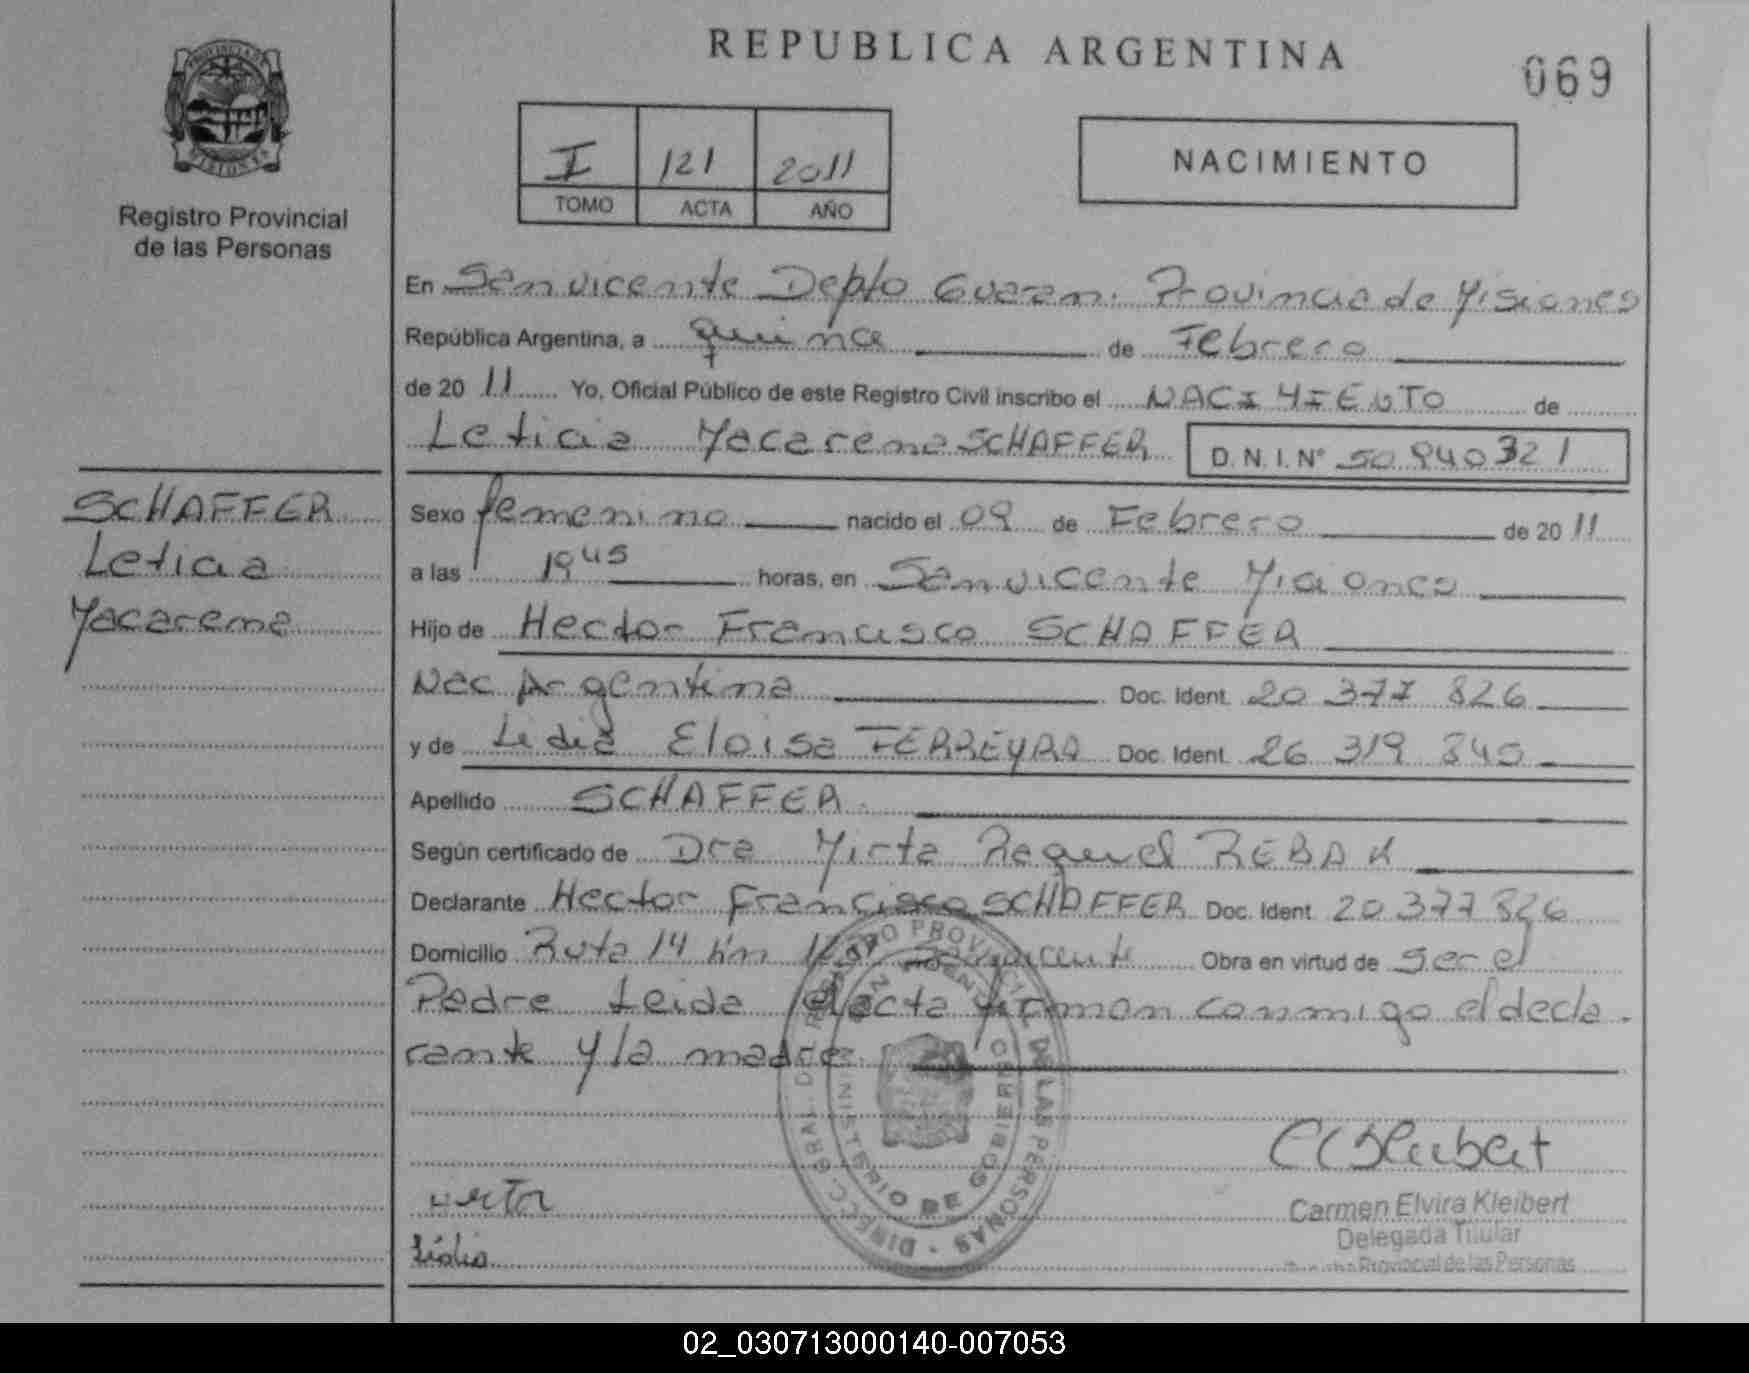 REPUBLICA ARGENTINA
069
I 121 2011
TOMO ACTA AÑO
NACIMIENTO
Registro Provincial
de las Personas
En San vicente Depto Guarani Provincia de Misiones
República Argentina, a quince de Febrero
de 2011 Yo, Oficial Público de este Registro Civil inscribo el NACIMIENTO de
Leticia Macarena SCHAFFER D.N.I.N° 50 940 321
SCHAFFER
Leticia
Macarena
Sexo femenino nacido el 09 de Febrero de 2011
a las 19 45 horas, en San vicente Misiones
Hijo de Hector Francisco SCHAFFER
Nac Argentina Doc. Ident. 20 377 826
y de Lidia Eloisa FERREYRA Doc. Ident. 26 319 845
Apellido SCHAFFER
Según certificado de Dra Mirta Raquel REBAK
Declarante Hector Francisco SCHAFFER Doc. Ident 20 377 826
Domicilio Ruta 14 Km San vicente Obra en virtud de ser el
Padre Leida el acta firman conmigo el decla
rante y la madre
DIRECC. GRAL. DE REGISTRO PROVINCIAL DE LAS PERSONAS
MINISTERIO DE GOBIERNO
Carmen Elvira Kleibert
Delegada Titular
Provincial de las Personas
Lidia
02_030713000140-007053